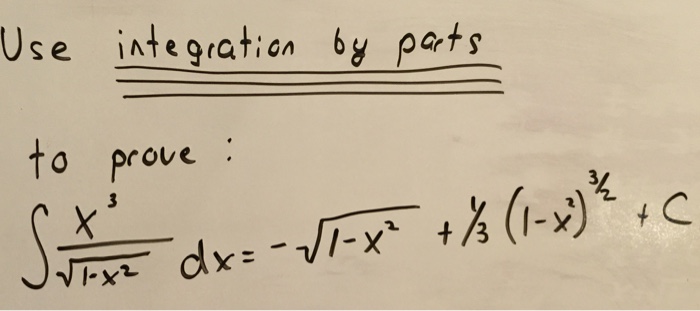 Use integration by parts
to prove :
∫ x³/√1-x² dx = -√1-x² + 1/3 (1-x²)^3/2 + C